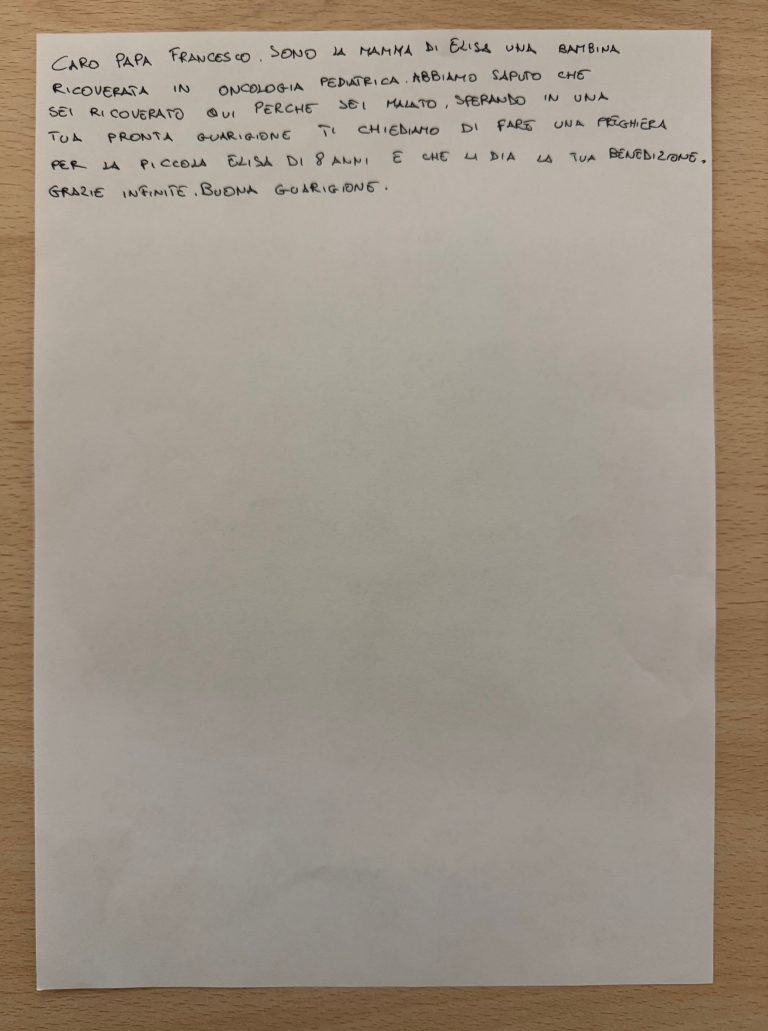 CARO PAPA FRANCESCO. SONO LA MAMMA DI ELISA UNA BAMBINA
RICOVERATA IN ONCOLOGIA PEDIATRICA. ABBIAMO SAPUTO CHE
SEI RICOVERATO QUI PERCHE SEI MALATO, SPERANDO IN UNA
TUA PRONTA GUARIGIONE TI CHIEDIAMO DI FARE UNA PREGHIERA
PER LA PICCOLA ELISA DI 8 ANNI E CHE LI DIA LA TUA BENEDIZIONE.
GRAZIE INFINITE. BUONA GUARIGIONE.